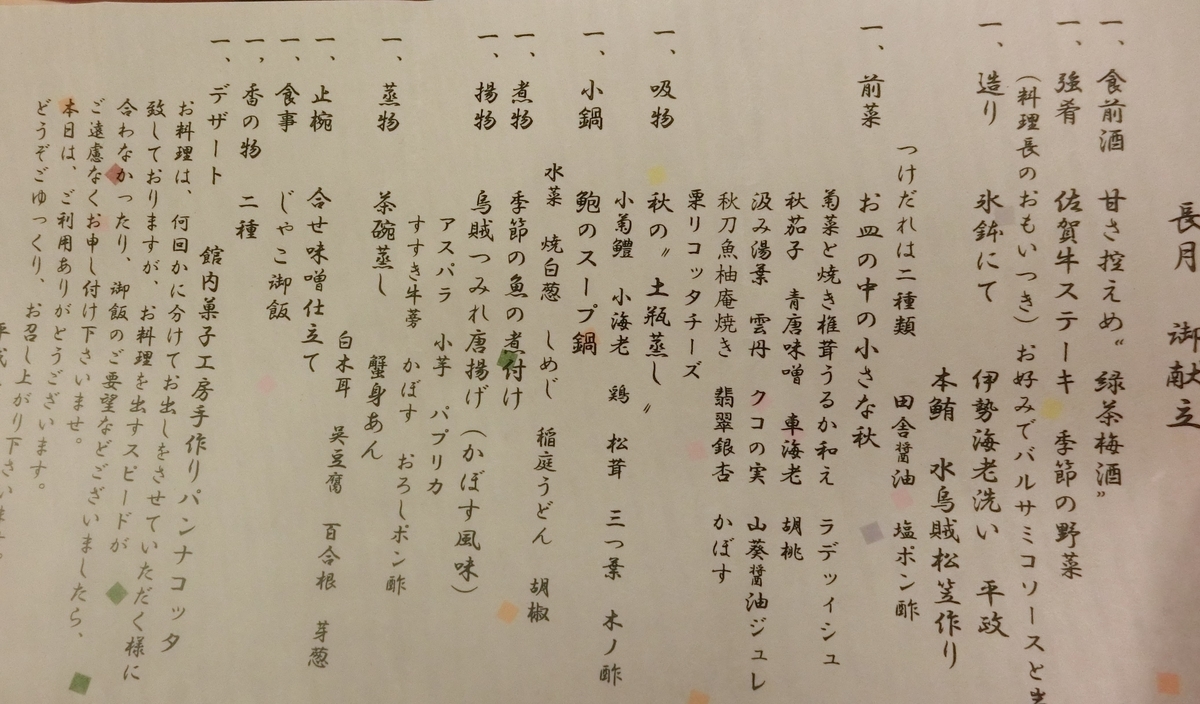 長月 御献立
一、食前酒 甘さ控えめ“緑茶梅酒”
一、強肴 佐賀牛ステーキ 季節の野菜
(料理長のおもいつき)お好みでバルサミコソースと
一、造り 氷鉢にて 伊勢海老洗い 平政
本鮪 水烏賊松笠作り
つけだれは二種類 田舎醤油 塩ポン酢
一、前菜 お皿の中の小さな秋
菊菜と焼き椎茸うるか和え ラディッシュ
秋茄子 青唐味噌 車海老 胡桃
汲み湯葉 雲丹 クコの実 山葵醤油ジュレ
秋刀魚柚庵焼き 翡翠銀杏 かぼす
栗リコッタチーズ
一、吸物 秋の〝土瓶蒸し〟
小菊鱧 小海老 鶏 松茸 三つ葉 木ノ酢
一、小鍋 鮑のスープ鍋
水菜 焼白葱 しめじ 稲庭うどん 胡椒
一、煮物 季節の魚の煮付け
一、揚物 烏賊つみれ唐揚げ(かぼす風味)
アスパラ 小芋 パプリカ
すすき牛蒡 かぼす おろしポン酢
一、蒸物 茶碗蒸し 蟹身あん
白木耳 呉豆腐 百合根 芽葱
一、止椀 合せ味噌仕立て
一、食事 じゃこ御飯
一、香の物 二種
一、デザート 館内菓子工房手作りパンナコッタ
お料理は、何回かに分けてお出しをさせていただく様に
致しておりますが、お料理を出すスピードが
合わなかったり、御飯のご要望などございましたら、
ご遠慮なくお申し付け下さいませ。
本日は、ご利用ありがとうございます。
どうぞごゆっくり、お召し上がり下さいませ。
平成